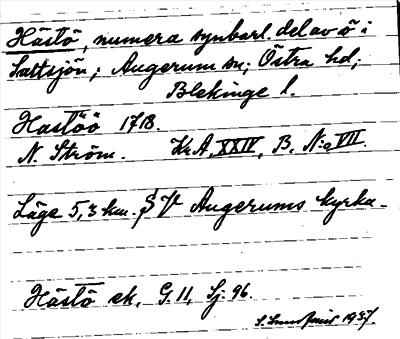 Hästö, numera synbarl. del av ö i
Sattsjön; Augerum sn; Östra hd;
Blekinge l.
Hastöö 1718.
N. Ström. Kr.A, XXIV, B, N:o VII.
Läge 5,3 km. S V Augerums kyrka.
Hästö ek, G. 11, Sj. 96.
1937.